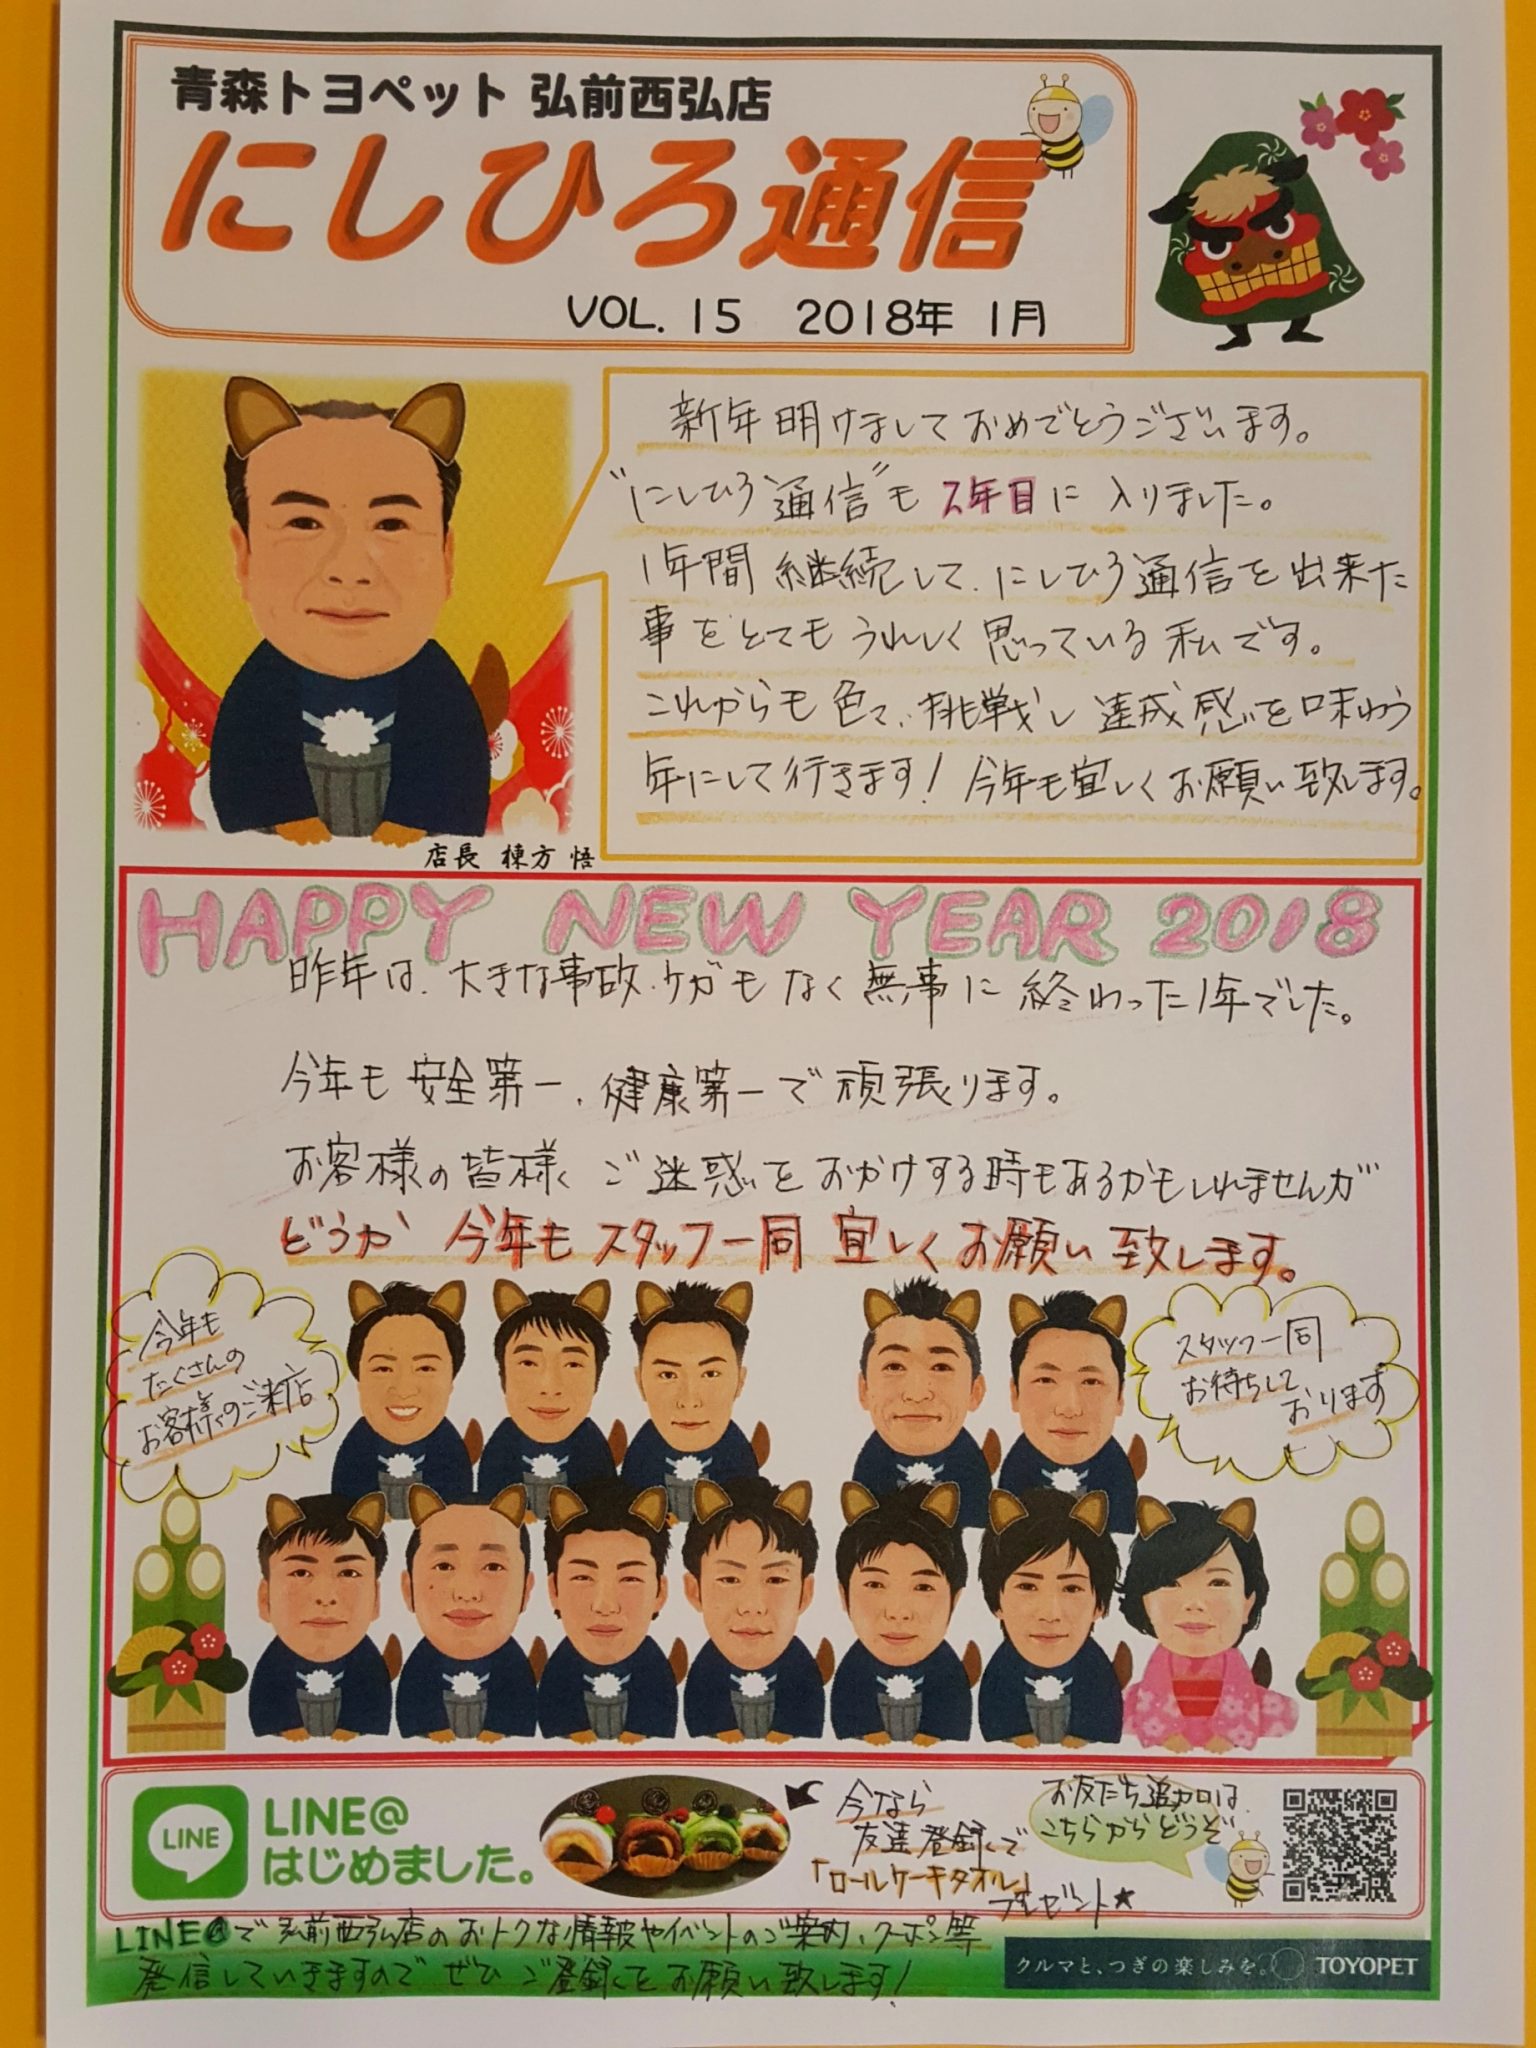 青森トヨペット 弘前西弘店
にしひろ通信
VOL. 15 2018年 1月
新年明けましておめでとうございます。
"にしひろ通信"も 2年目に 入りました。
1年間 継続して、にしひろ通信を出来た
事をとてもうれしく思っている私です。
これからも色々、挑戦し 達成感を味わう
年にして行きます! 今年も宜しくお願い致します。
店長 棟方 悟
HAPPY NEW YEAR 2018
昨年は、大きな事故・ケガもなく無事に終わった1年でした。
今年も安全第一、健康第一で頑張ります。
お客様の皆様く ご迷惑をおかけする時もあるかもしれませんが
どうか 今年もスタッフ一同 宜しくお願い致します。
今年も
たくさんの
お客様のご来店
スタッフ一同
お待ちして
おります
LINE
LINE@
はじめました。
今なら
友達登録で
「ロールケーキタオル」
プレゼント★
お友だち追加は、
こちらからどうぞ
LINE@で弘前西弘店のおトクな情報やイベントのご案内、クーポン等
発信していきますので ぜひ ご登録をお願い致します!
クルマと、つぎの楽しみを。 TOYOPET